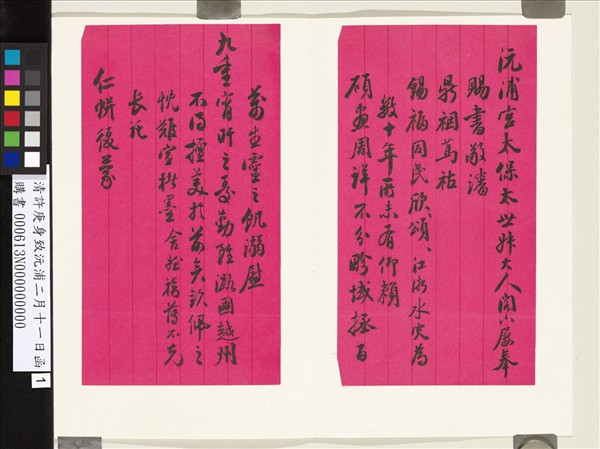 沅浦宮太保太世大人閣下屢奉
賜書敬審
鼎祺篤祜
錫福同民欣頌、江浙水災為
數十年所未有仰賴
碩畫周詳不分畛域拯百
萬生靈之飢溺慰
九重宵旰之憂勤雖潞國越州
不得擅美於前矣欽佩之
忱難宣楮墨舍姪薄不克
長託
仁帡後蒙
清許庚身致沅浦二月十一日函 1
購書 000613N000000000